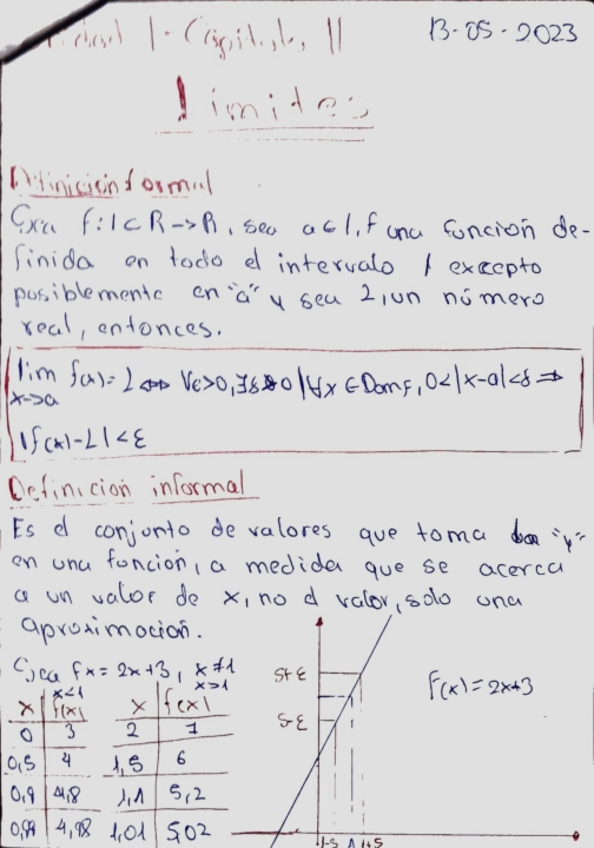 Unidad 1 - Capitulo II
13-05-2023
Limites
Difinición formal
Sea f: I ⊂ R -> R, sea a ∈ I, f una función de-
finida en todo el intervalo I excepto
posiblemente en "a" y sea L, un número
real, entonces.
lim f(x) = L <=> ∀ε>0, ∃δ>0 | ∀x ∈ Dom f, 0<|x-a|<δ =>
x->a
|f(x)-L|<ε
Definición informal
Es el conjunto de valores que toma "y"
en una función, a medida que se acerca
a un valor de x, no el valor, solo una
aproximación.
Sea fx = 2x+3, x ≠ 1
x<1 x>1
x f(x) x f(x)
0 3 2 7
0,5 4 1,5 6
0,9 4,8 1,1 5,2
0,99 4,98 1,01 5,02
5+ε
5-ε
f(x) = 2x+3
1-δ 1 1+δ